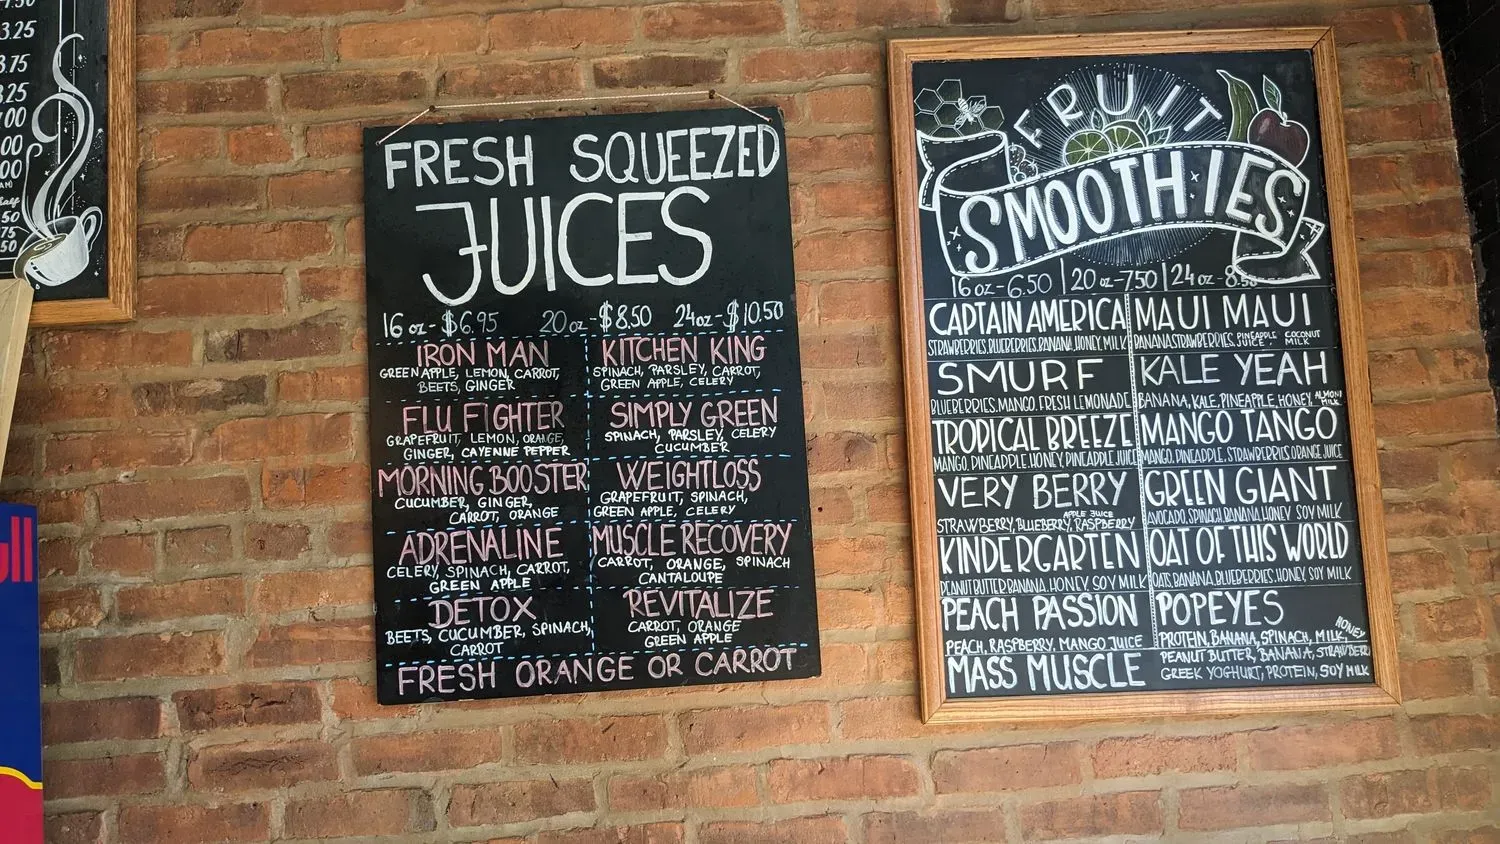 3.25
3.75
3.25
.00
.00
.00
Half
50
75
50
ull
FRESH SQUEEZED
JUICES
16 oz - $6.95 20 oz - $8.50 24 oz - $10.50
IRON MAN
GREEN APPLE, LEMON, CARROT,
BEETS, GINGER
FLU FIGHTER
GRAPEFRUIT, LEMON, ORANGE,
GINGER, CAYENNE PEPPER
MORNING BOOSTER
CUCUMBER, GINGER,
CARROT, ORANGE
ADRENALINE
CELERY, SPINACH, CARROT,
GREEN APPLE
DETOX
BEETS, CUCUMBER, SPINACH,
CARROT
KITCHEN KING
SPINACH, PARSLEY, CARROT,
GREEN APPLE, CELERY
SIMPLY GREEN
SPINACH, PARSLEY, CELERY
CUCUMBER
WEIGHTLOSS
GRAPEFRUIT, SPINACH,
GREEN APPLE, CELERY
MUSCLE RECOVERY
CARROT, ORANGE, SPINACH
CANTALOUPE
REVITALIZE
CARROT, ORANGE
GREEN APPLE
FRESH ORANGE OR CARROT
FRUIT
SMOOTHIES
16 oz - 6.50 | 20 oz - 7.50 | 24 oz - 8.50
CAPTAIN AMERICA
STRAWBERRIES, BLUEBERRIES, BANANA, HONEY, MILK
SMURF
BLUEBERRIES, MANGO, FRESH LEMONADE
TROPICAL BREEZE
MANGO, PINEAPPLE, HONEY, PINEAPPLE JUICE
VERY BERRY
STRAWBERRY, BLUEBERRY, RASPBERRY APPLE JUICE
KINDERGARTEN
PEANUT BUTTER, BANANA, HONEY, SOY MILK
PEACH PASSION
PEACH, RASPBERRY, MANGO JUICE
MASS MUSCLE
MAUI MAUI
BANANA STRAWBERRIES, PINEAPPLE JUICE, COCONUT MILK
KALE YEAH
BANANA, KALE, PINEAPPLE, HONEY, ALMOND MILK
MANGO TANGO
MANGO, PINEAPPLE, STRAWBERRIES ORANGE JUICE
GREEN GIANT
AVOCADO, SPINACH, BANANA, HONEY SOY MILK
OAT OF THIS WORLD
OATS, BANANA, BLUEBERRIES, HONEY, SOY MILK
POPEYES
PROTEIN, BANANA, SPINACH, MILK, HONEY
PEANUT BUTTER, BANANA, STRAWBERRY
GREEK YOGHURT, PROTEIN, SOY MILK